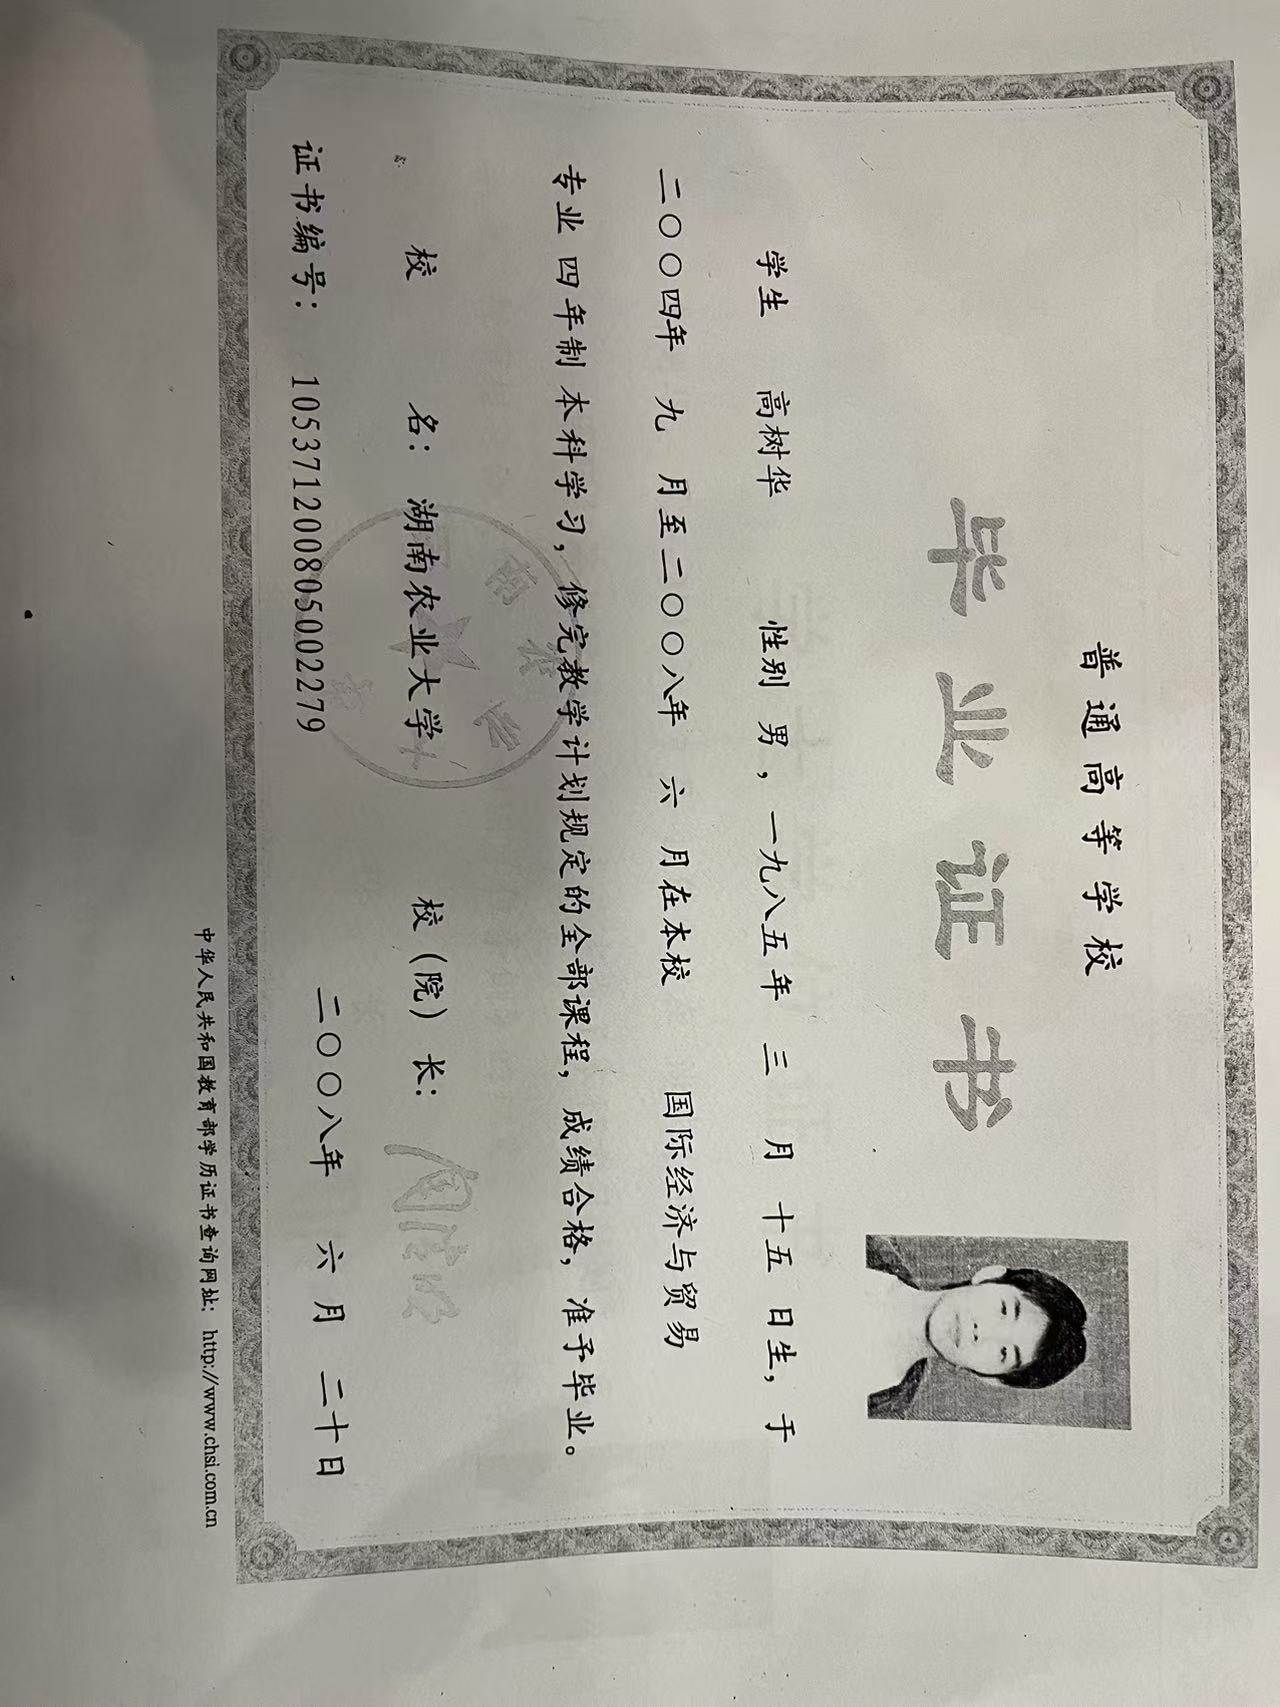 普通高等学校
毕业证书
学生 高树华 性别 男，一九八五年 三 月 十五 日生，于
二〇〇四年 九 月至二〇〇八年 六 月在本校 国际经济与贸易
专业 四年制 本科学习，修完教学计划规定的全部课程，成绩合格，准予毕业。
校 名： 湖南农业大学 校（院）长：
证书编号： 105371200805002279 二〇〇八年 六 月 二十日
中华人民共和国教育部学历证书查询网址： http://www.chsi.com.cn